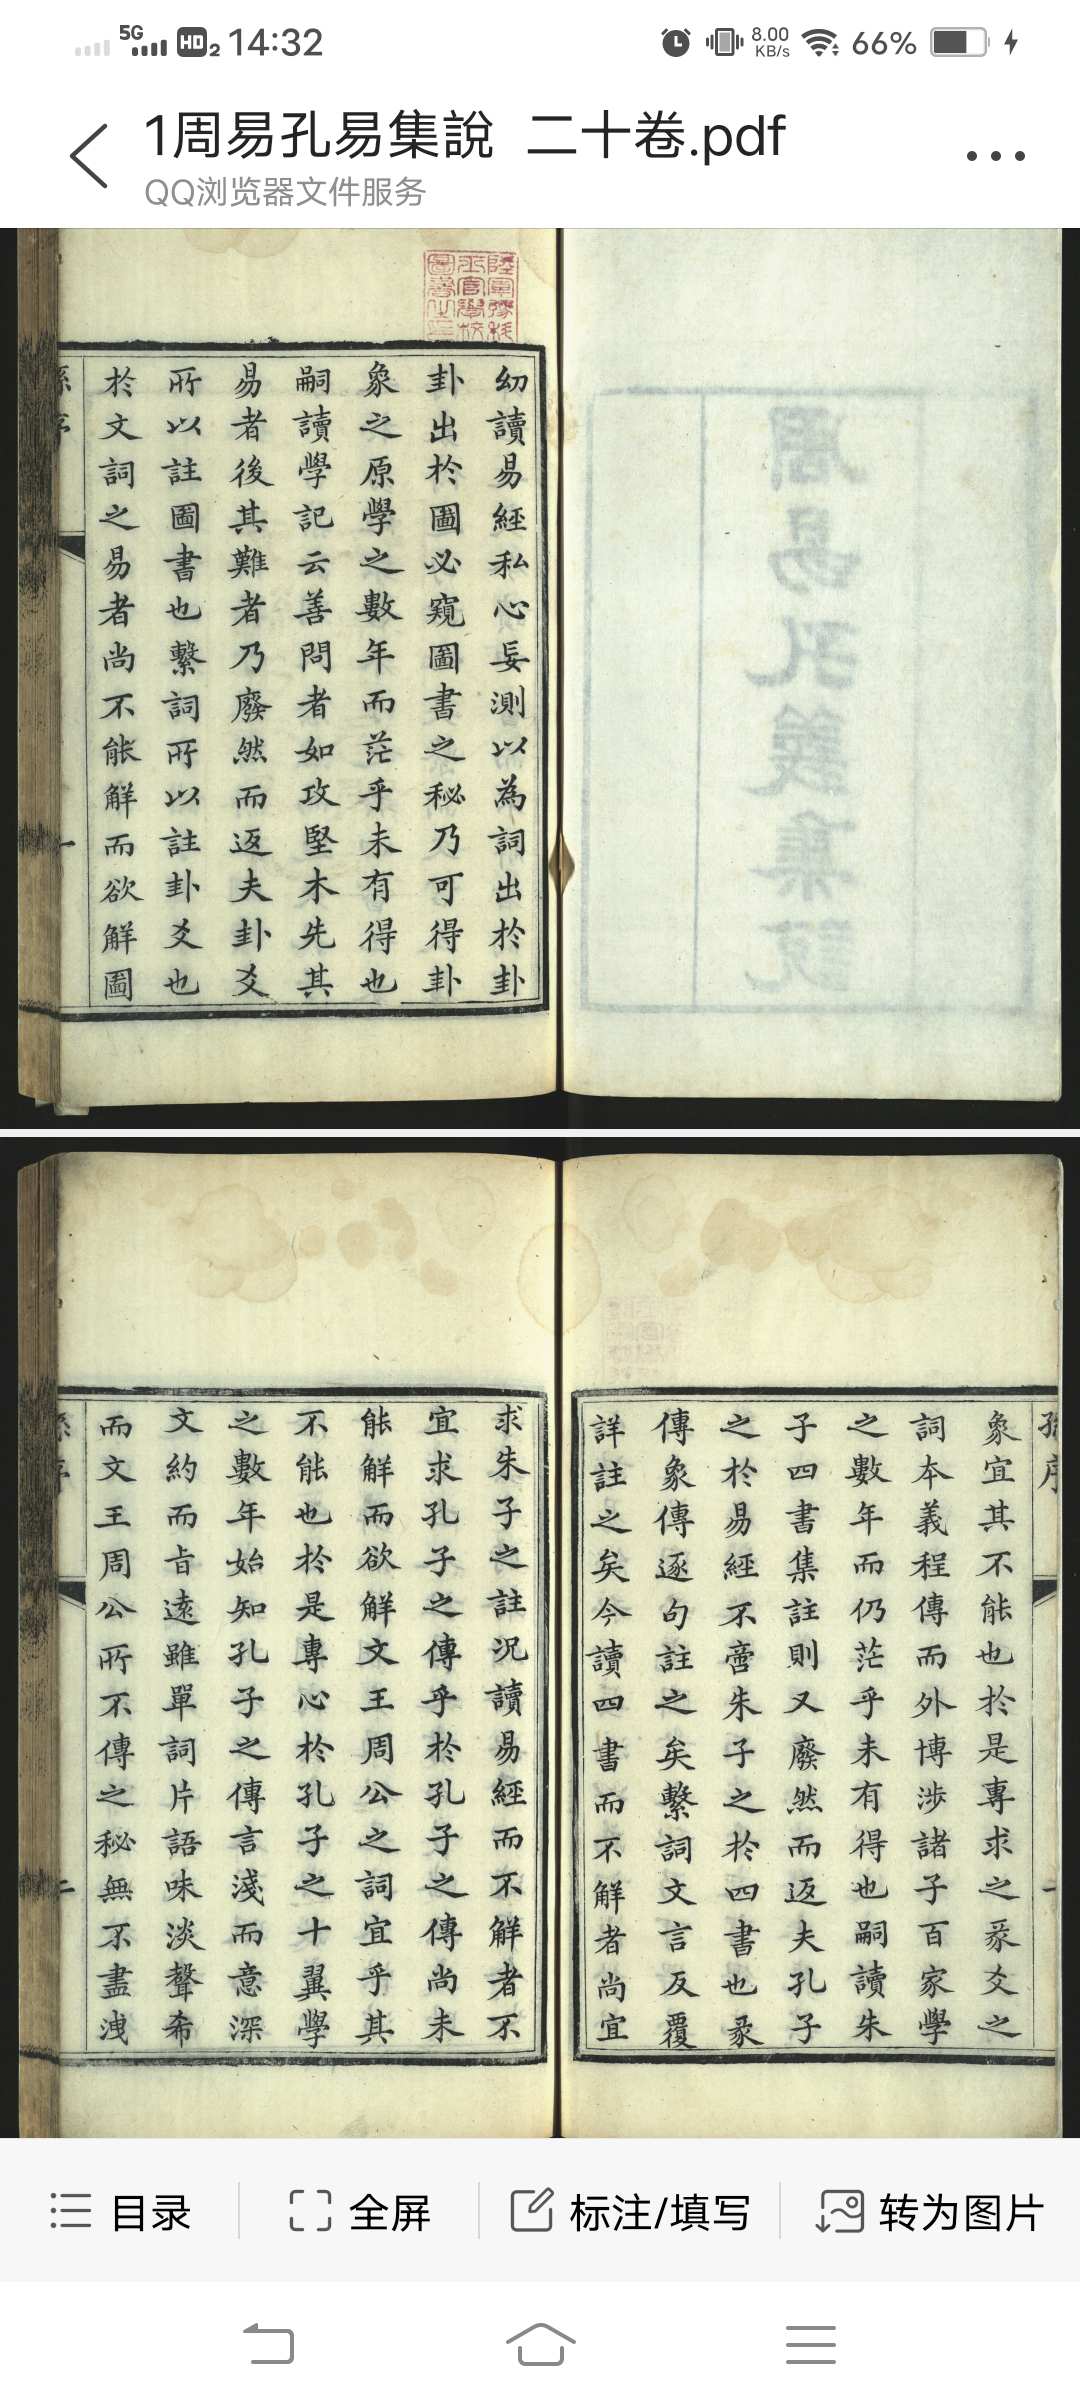 5G
HD2 14:32
8.00
KB/s
66%
1周易孔易集說 二十卷.pdf
QQ浏览器文件服务
周易孔義集說
幼讀易經私心妄測以為詞出於卦
卦出於圖必窺圖書之秘乃可得卦
象之原學之數年而茫乎未有得也
嗣讀學記云善問者如攻堅木先其
易者後其難者乃廢然而返夫卦爻
所以註圖書也繫詞所以註卦爻也
於文詞之易者尚不能解而欲解圖
孫序
一
孫序
一
象宜其不能也於是專求之彖爻之
詞本義程傳而外博涉諸子百家學
之數年而仍茫乎未有得也嗣讀朱
子四書集註則又廢然而返夫孔子
之於易經不啻朱子之於四書也彖
傳象傳逐句註之矣繫詞文言反覆
詳註之矣今讀四書而不解者尚宜
求朱子之註況讀易經而不解者不
宜求孔子之傳乎於孔子之傳尚未
能解而欲解文王周公之詞宜乎其
不能也於是專心於孔子之十翼學
之數年始知孔子之傳言淺而意深
文約而旨遠雖單詞片語味淡聲希
而文王周公所不傳之秘無不盡洩
孫序
二
目录
全屏
标注/填写
转为图片